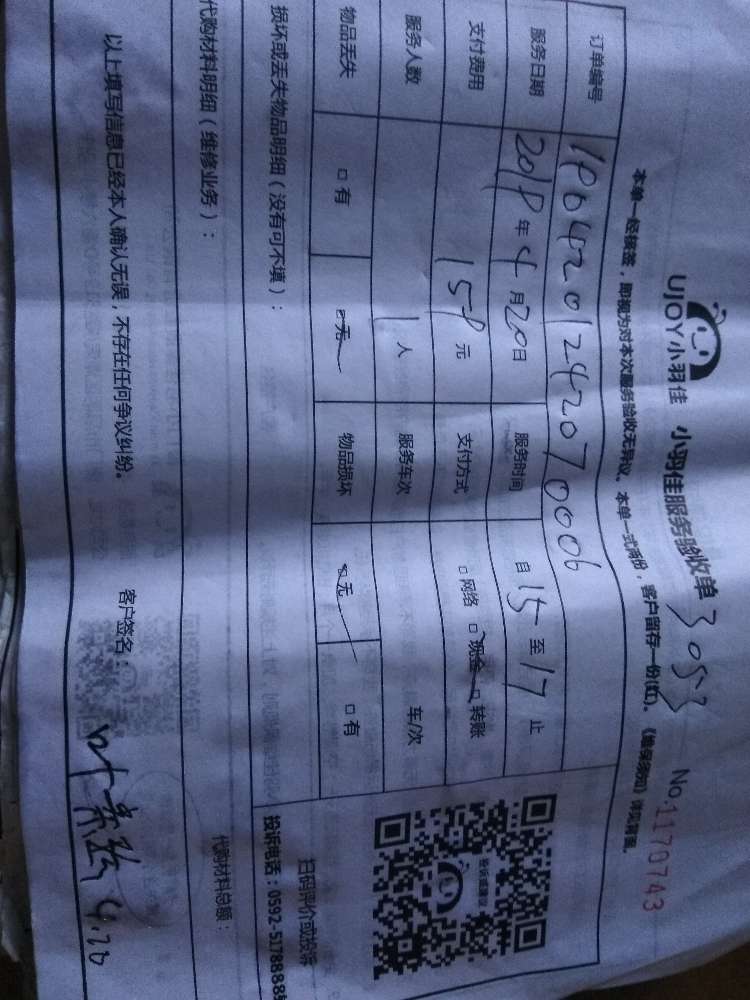 UJOY小羽佳 小羽佳服务验收单 3053 No:1170743
本单一经核签,即视为对本次服务验收无异议、本单一式两份,客户留存一份(红)、《维保须知》详见背面。
订单编号 1804201242070006
服务日期 2018年4月20日 服务时间 自15至17止
支付费用 158元 支付方式 □网络 □现金 □转账
服务人数 1人 服务车次 车/次
物品丢失 □有 □无 物品损坏 □无 □有
扫码评价或投诉
损坏或丢失物品明细(没有可不填): 投诉电话:0592-5178885
代购材料明细(维修业务): 代购材料总额:
以上填写信息已经本人确认无误,不存在任何争议纠纷。 客户签名: 4.20